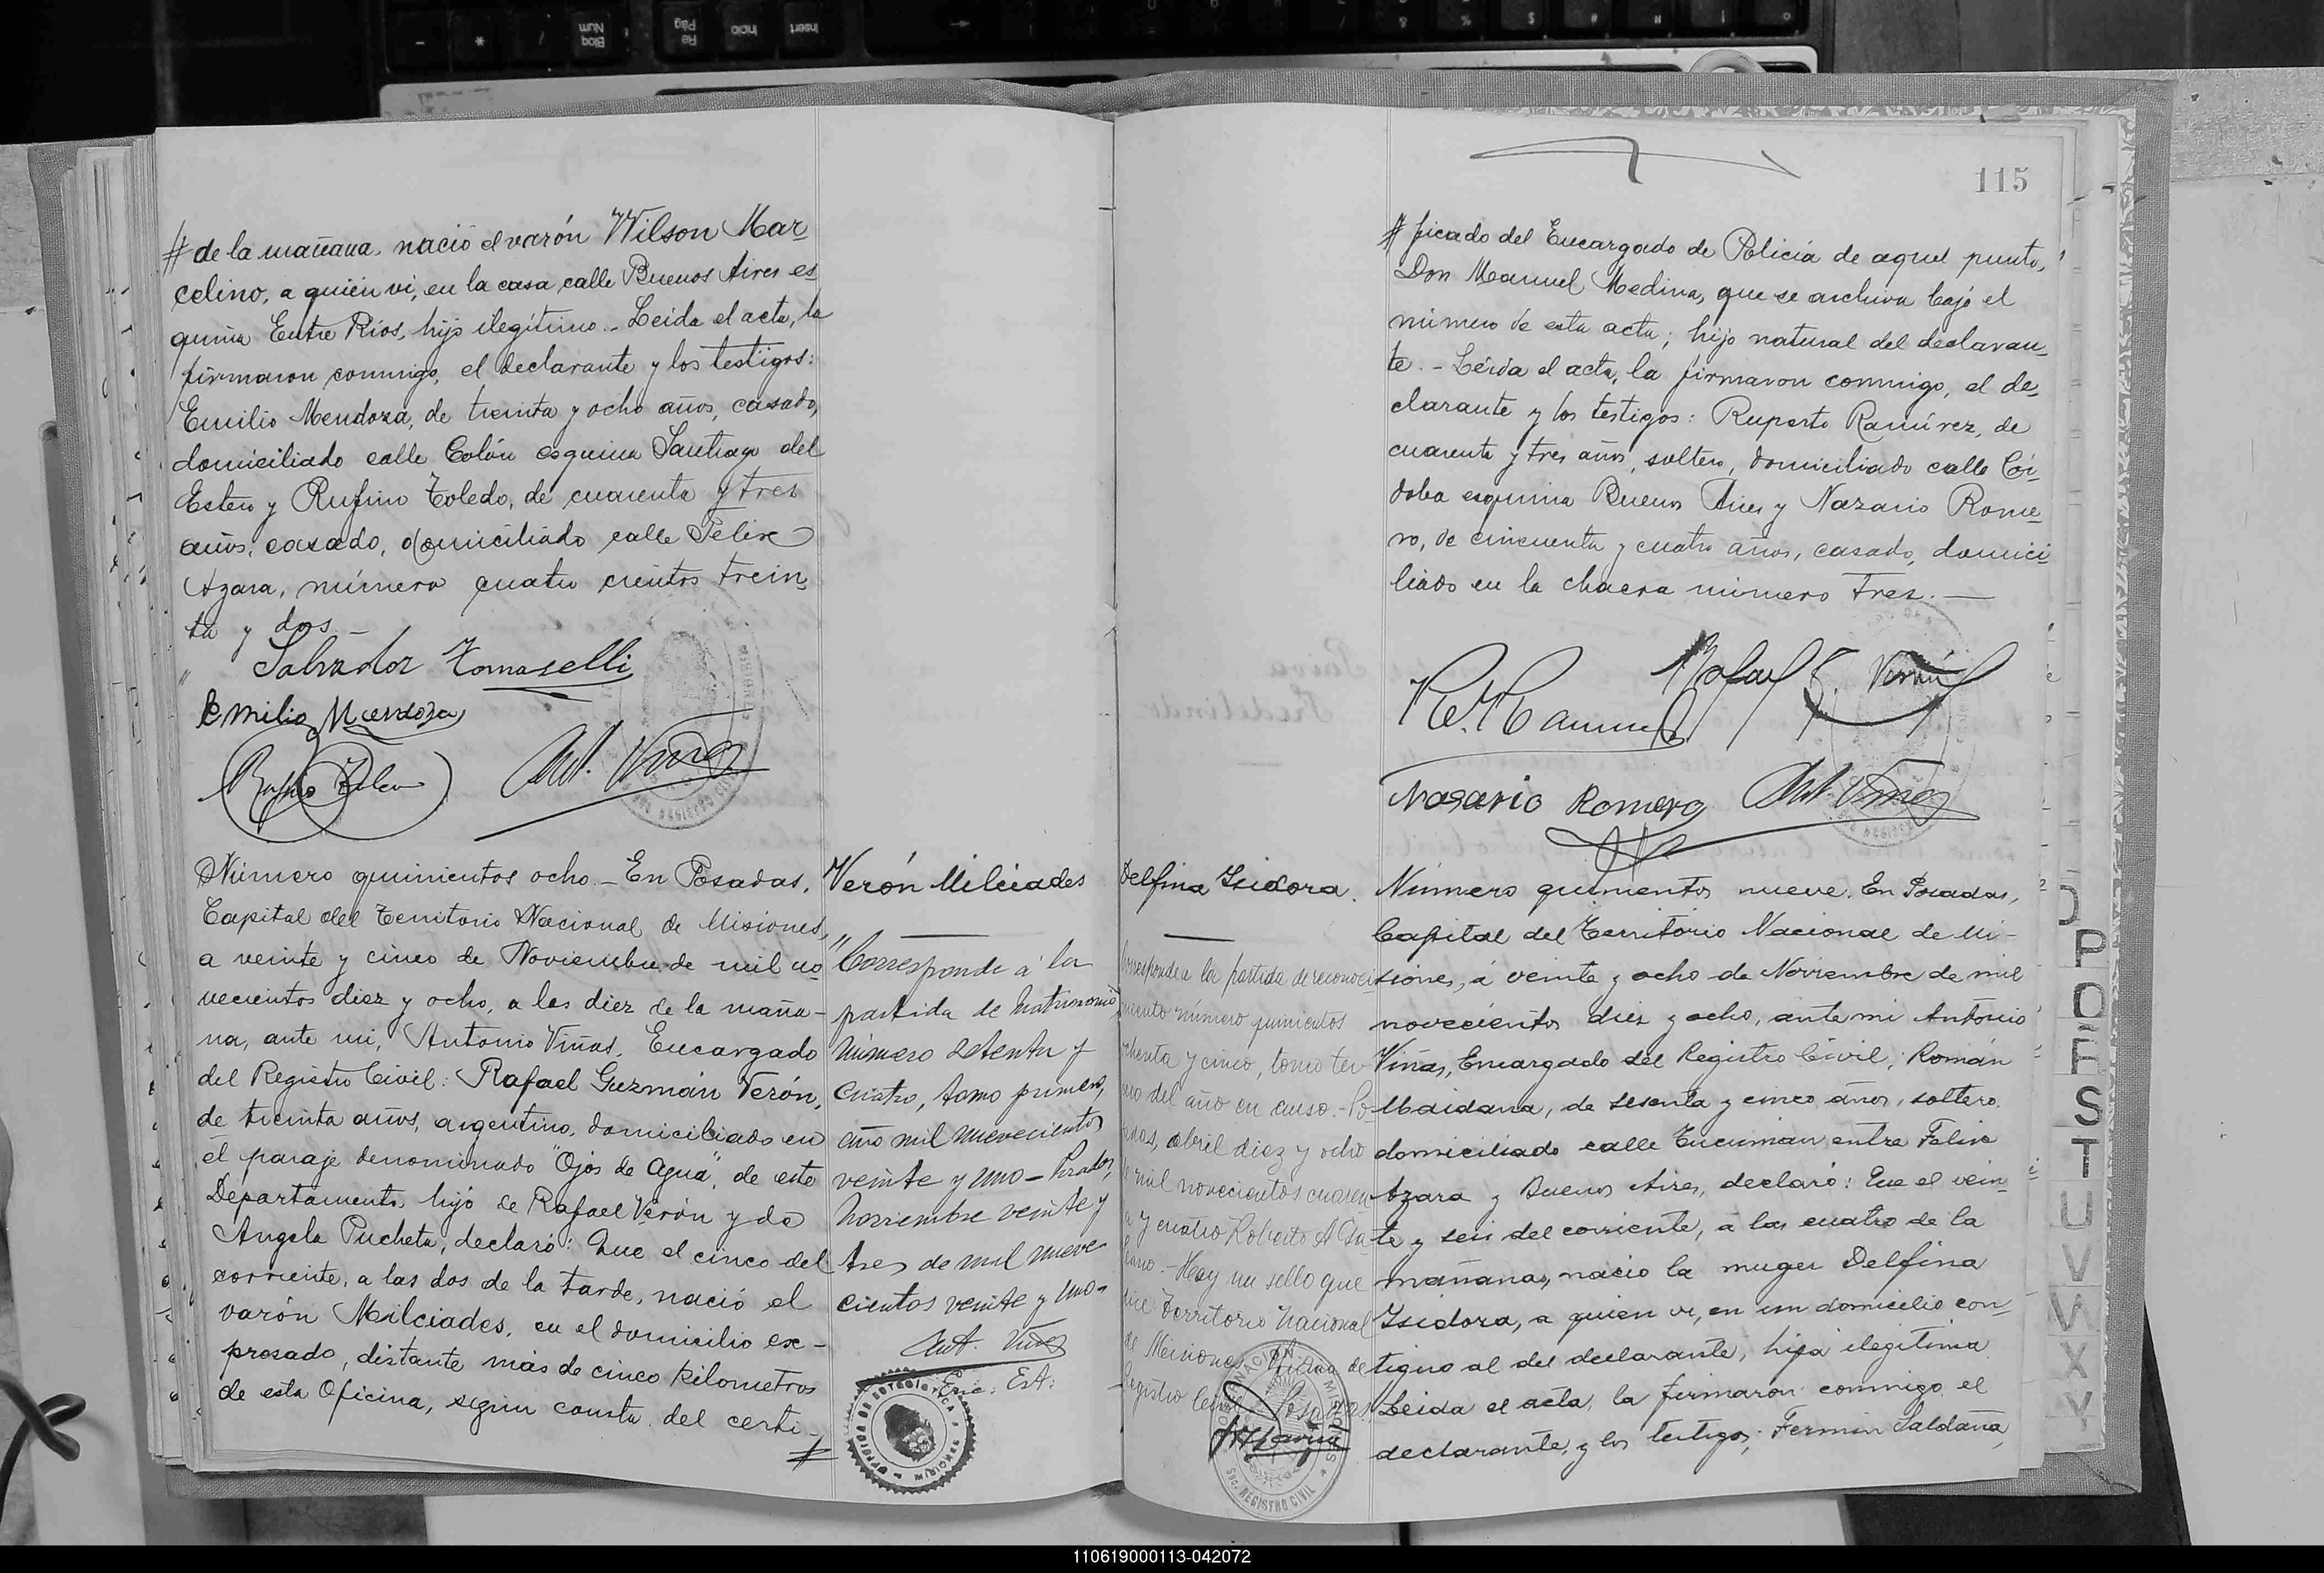 # de la mañana, nació el varón Wilson Mar-
celino, a quién vi, en la casa calle Buenos Aires es-
quina Entre Ríos, hijo ilegítimo.- Leida el acta, la
firmaron conmigo, el declarante y los testigos:
Emilio Mendoza, de treinta y ocho años, casado,
domiciliado calle Colón esquina Santiago del
Estero y Rufino Toledo, de cuarenta y tres
años, casado, domiciliado calle Felix
Azara, número cuatro cientos trein-
ta y dos.-
Salvador Tomaselli
Emilio Mendoza
Ant. Viñas
Número quinientos ocho.- En Posadas,
Capital del Territorio Nacional de Misiones,
a veinte y cinco de Noviembre de mil no
vecientos diez y ocho, a las diez de la maña-
na, ante mi, Antonio Viñas, Encargado
del Registro Civil: Rafael Guzmán Verón,
de treinta años, argentino, domiciliado en
el paraje denominado "Ojos de Agua", de este
Departamento, hijo de Rafael Verón y de
Angela Pucheta, declaró: Que el cinco del
corriente, a las dos de la tarde, nació el
varón Milciades, en el domicilio ex-
presado, distante más de cinco kilometros
de esta Oficina, según consta del certi-
#
Verón Milciades
Corresponde á la
partida de Matrimonio
número setenta y
cuatro, tomo primero,
año mil nuevecientos
veinte y uno - Posadas,
Noviembre veinte y
tres de mil nueve-
cientos veinte y uno-
Ant. Viñas
Enc: Est:
115
# ficado del Encargado de Policía de aquel punto,
Don Manuel Medina, que se archiva bajo el
número de esta acta; hijo natural del declaran-
te.- Leída el acta, la firmaron conmigo, el de-
clarante y los testigos: Ruperto Ramírez, de
cuarenta y tres años, soltero, domiciliado calle Cór-
doba esquina Buenos Aires y Nazario Rome-
ro, de cincuenta y cuatro años, casado, domici-
liado en la chacra número tres.-
Rafael G. Verón
Nasario Romero
Ant. Viñas
Delfina Isidora.
Corresponde a la partida de reconoci-
miento número quinientos
ochenta y cinco, tomo ter-
cero del año en curso.- Po-
sadas, abril diez y ocho
de mil novecientos cuaren-
ta y cuatro Roberto A
Hay un sello que
dice: Territorio Nacional
de Misiones
Registro Civil Posadas
Número quinientos nueve. En Posadas,
Capital del Territorio Nacional de Mi-
siones, á veinte y ocho de Noviembre de mil
novecientos diez y ocho, ante mi Antonio
Viñas, Encargado del Registro Civil; Román
Maidana, de sesenta y cinco años, soltero,
domiciliado calle Tucumán entre Felix
Azara y Buenos Aires, declaró: Que el vein-
te y seis del corriente, a las cuatro de la
mañana, nació la muger Delfina
Isidora, a quien vi, en un domicilio con-
tiguo al del declarante, hija ilegítima.
Leida el acta, la firmaron conmigo, el
declarante, y los testigos; Fermín Saldaña,
P
S
T
U
V
W
X
Y
110619000113-042072